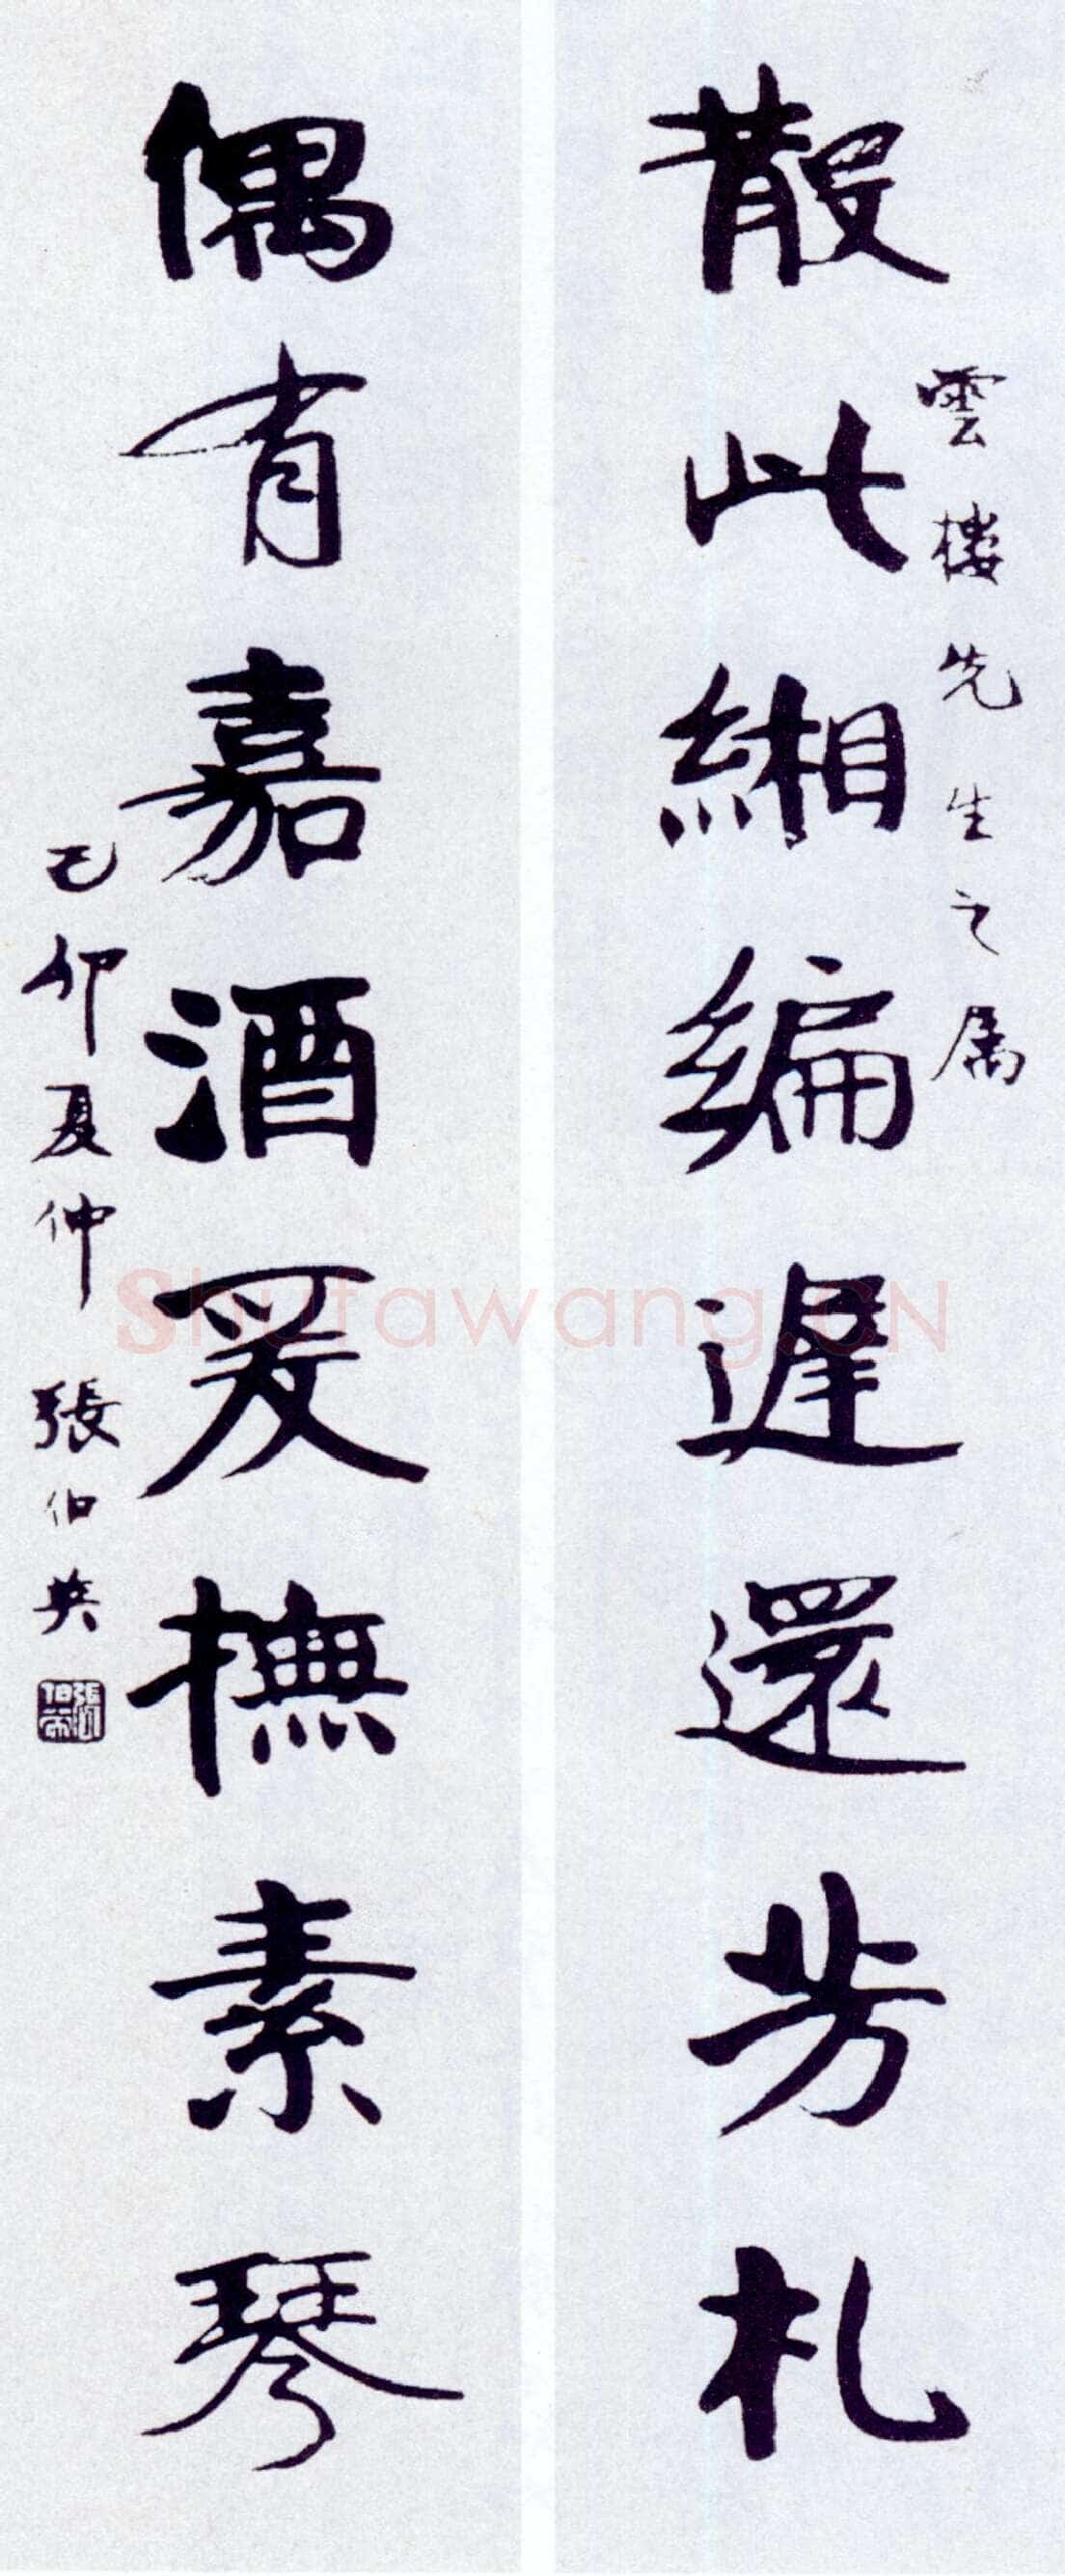 散此緗編遲還芳札
雲樓先生之屬
偶有嘉酒爰撫素琴
己卯夏仲 張伯英
Shufawang.CN